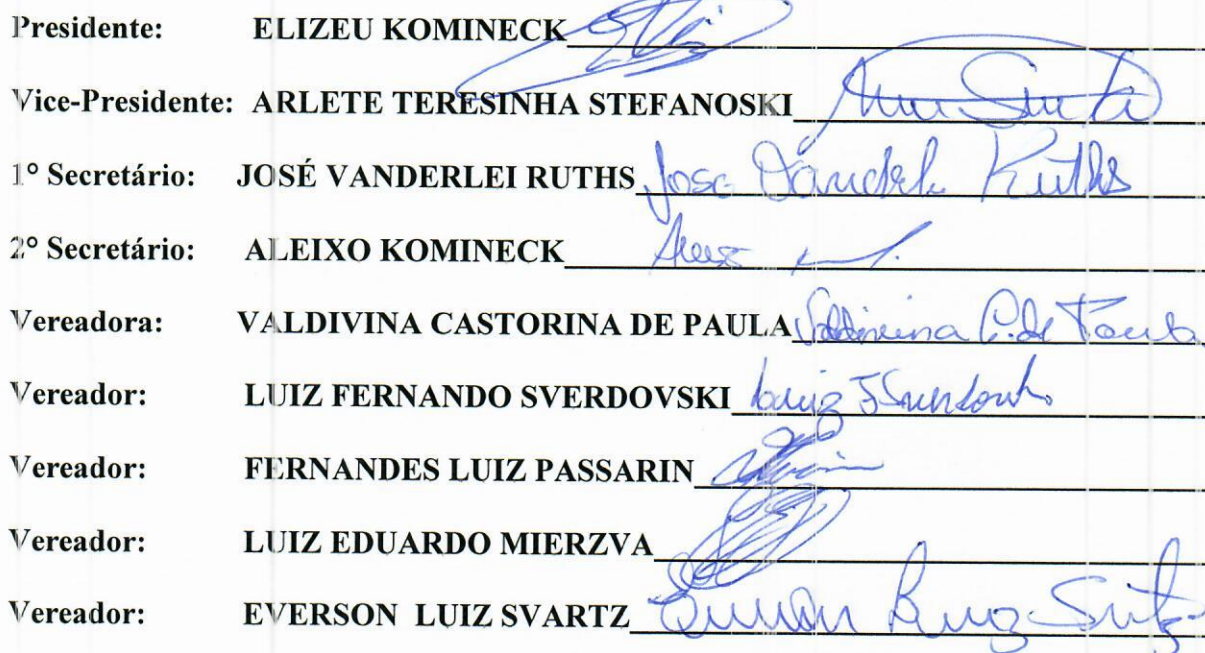 Presidente: ELIZEU KOMINECK
Vice-Presidente: ARLETE TERESINHA STEFANOSKI
1º Secretário: JOSÉ VANDERLEI RUTHS Jose Vanderlei Ruths
2º Secretário: ALEIXO KOMINECK
Vereadora: VALDIVINA CASTORINA DE PAULA Valdivina C. de Paula
Vereador: LUIZ FERNANDO SVERDOVSKI Luiz F Sverdovski
Vereador: FERNANDES LUIZ PASSARIN
Vereador: LUIZ EDUARDO MIERZVA
Vereador: EVERSON LUIZ SVARTZ Everson Luiz Svartz